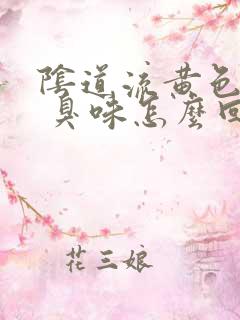 陰道流黄色
臭味怎麼回
花三娘